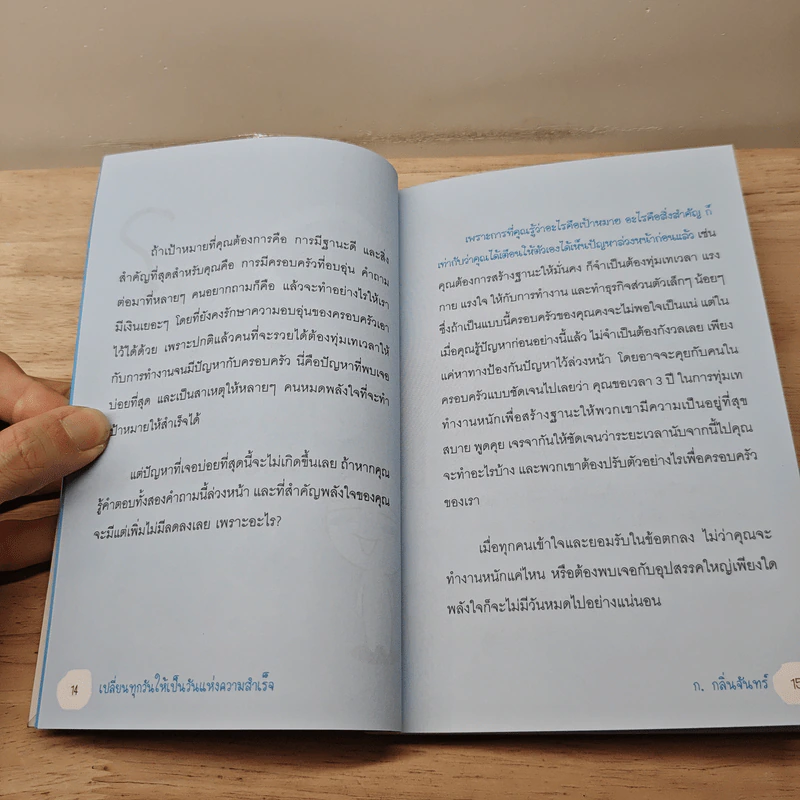 ถ้าเป้าหมายที่คุณต้องการคือ การมีฐานะดี และสิ่ง
สำคัญที่สุดสำหรับคุณคือ การมีครอบครัวที่อบอุ่น คำถาม
ต่อมาที่หลายๆ คนอยากถามก็คือ แล้วจะทำอย่างไรให้เรา
มีเงินเยอะๆ โดยที่ยังคงรักษาความอบอุ่นของครอบครัวเอา
ไว้ได้ด้วย เพราะปกติแล้วคนที่จะรวยได้ต้องทุ่มเทเวลาให้
กับการทำงานจนมีปัญหากับครอบครัว นี่คือปัญหาที่พบเจอ
บ่อยที่สุด และเป็นสาเหตุให้หลายๆ คนหมดพลังใจที่จะทำ
เป้าหมายให้สำเร็จได้
แต่ปัญหาที่เจอบ่อยที่สุดนี้จะไม่เกิดขึ้นเลย ถ้าหากคุณ
รู้คำตอบทั้งสองคำถามนี้ล่วงหน้า และที่สำคัญพลังใจของคุณ
จะมีแต่เพิ่มไม่มีลดลงเลย เพราะอะไร?
14 เปลี่ยนทุกวันให้เป็นวันแห่งความสำเร็จ
เพราะการที่คุณรู้ว่าอะไรคือเป้าหมาย อะไรคือสิ่งสำคัญ ก็
เท่ากับว่าคุณได้เตือนให้ตัวเองได้เห็นปัญหาล่วงหน้าก่อนแล้ว เช่น
คุณต้องการสร้างฐานะให้มั่นคง ก็จำเป็นต้องทุ่มเทเวลา แรง
กาย แรงใจ ให้กับการทำงาน และทำธุรกิจส่วนตัวเล็กๆ น้อยๆ
ซึ่งถ้าเป็นแบบนี้ครอบครัวของคุณคงจะไม่พอใจเป็นแน่ แต่ใน
เมื่อคุณรู้ปัญหาก่อนอย่างนี้แล้ว ไม่จำเป็นต้องกังวลเลย เพียง
แค่หาทางป้องกันปัญหาไว้ล่วงหน้า โดยอาจจะคุยกับคนใน
ครอบครัวแบบชัดเจนไปเลยว่า คุณขอเวลา 3 ปี ในการทุ่มเท
ทำงานหนักเพื่อสร้างฐานะให้พวกเขามีความเป็นอยู่ที่สุข
สบาย พูดคุย เจรจากันให้ชัดเจนว่าระยะเวลานับจากนี้ไปคุณ
จะทำอะไรบ้าง และพวกเขาต้องปรับตัวอย่างไรเพื่อครอบครัว
ของเรา
เมื่อทุกคนเข้าใจและยอมรับในข้อตกลง ไม่ว่าคุณจะ
ทำงานหนักแค่ไหน หรือต้องพบเจอกับอุปสรรคใหญ่เพียงใด
พลังใจก็จะไม่มีวันหมดไปอย่างแน่นอน
ก. กลิ่นจันทร์ 15